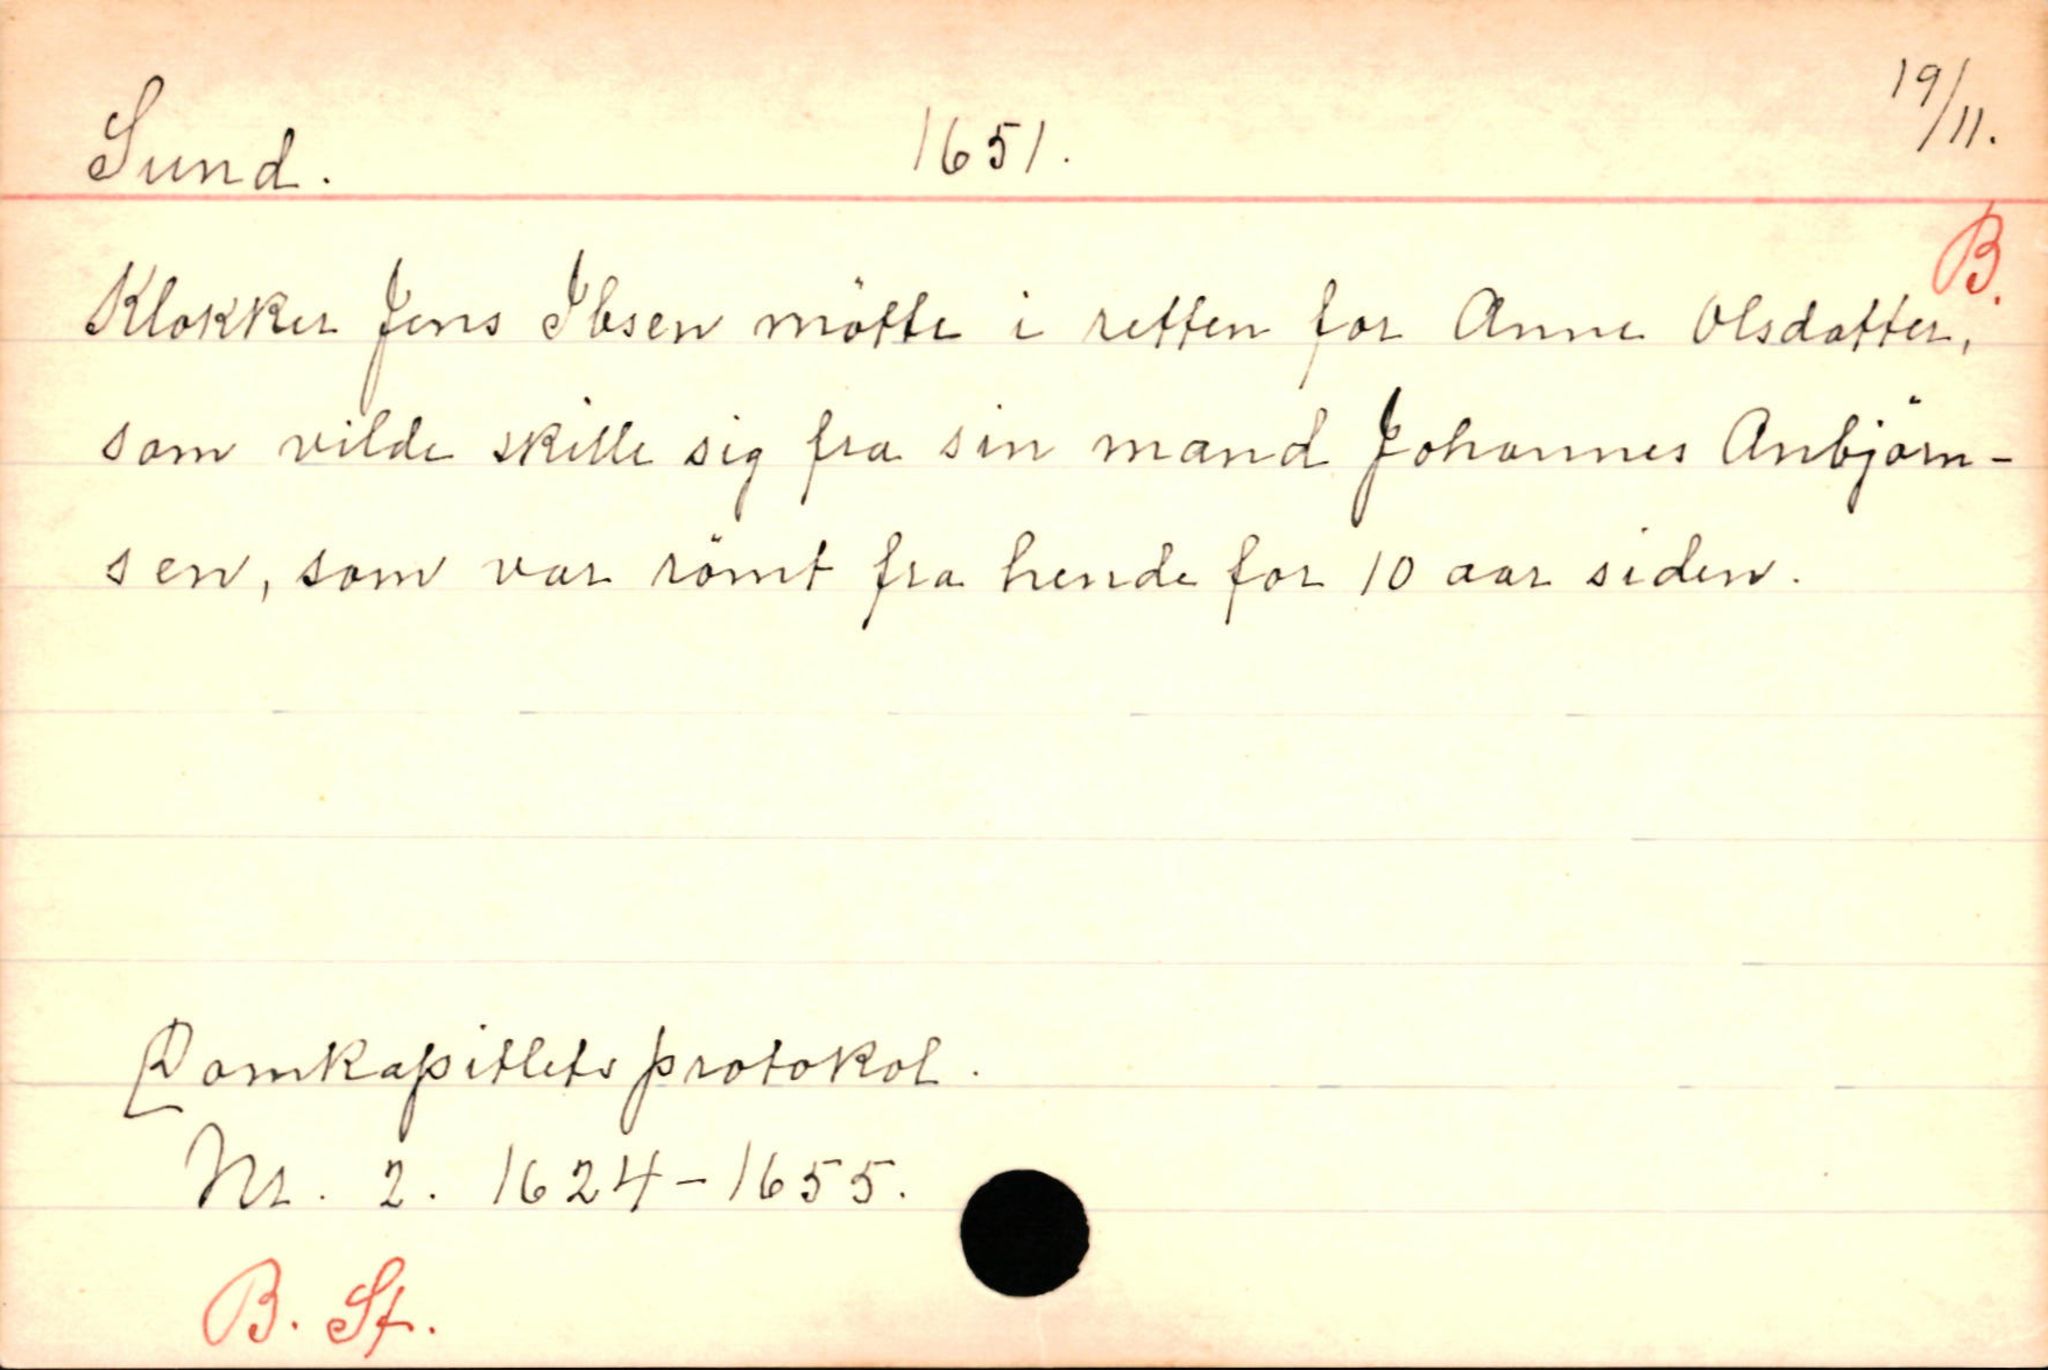 Sund. 1651. 19/11.
B.
Klokker Jens Ibsen mötte i retten for Anne Olsdatter,
som vilde skille sig fra sin mand Johannes Anbjörn-
sen, som var römt fra hende for 10 aar siden.
Domkapitlets protokol.
Nr. 2. 1624-1655.
B. St.